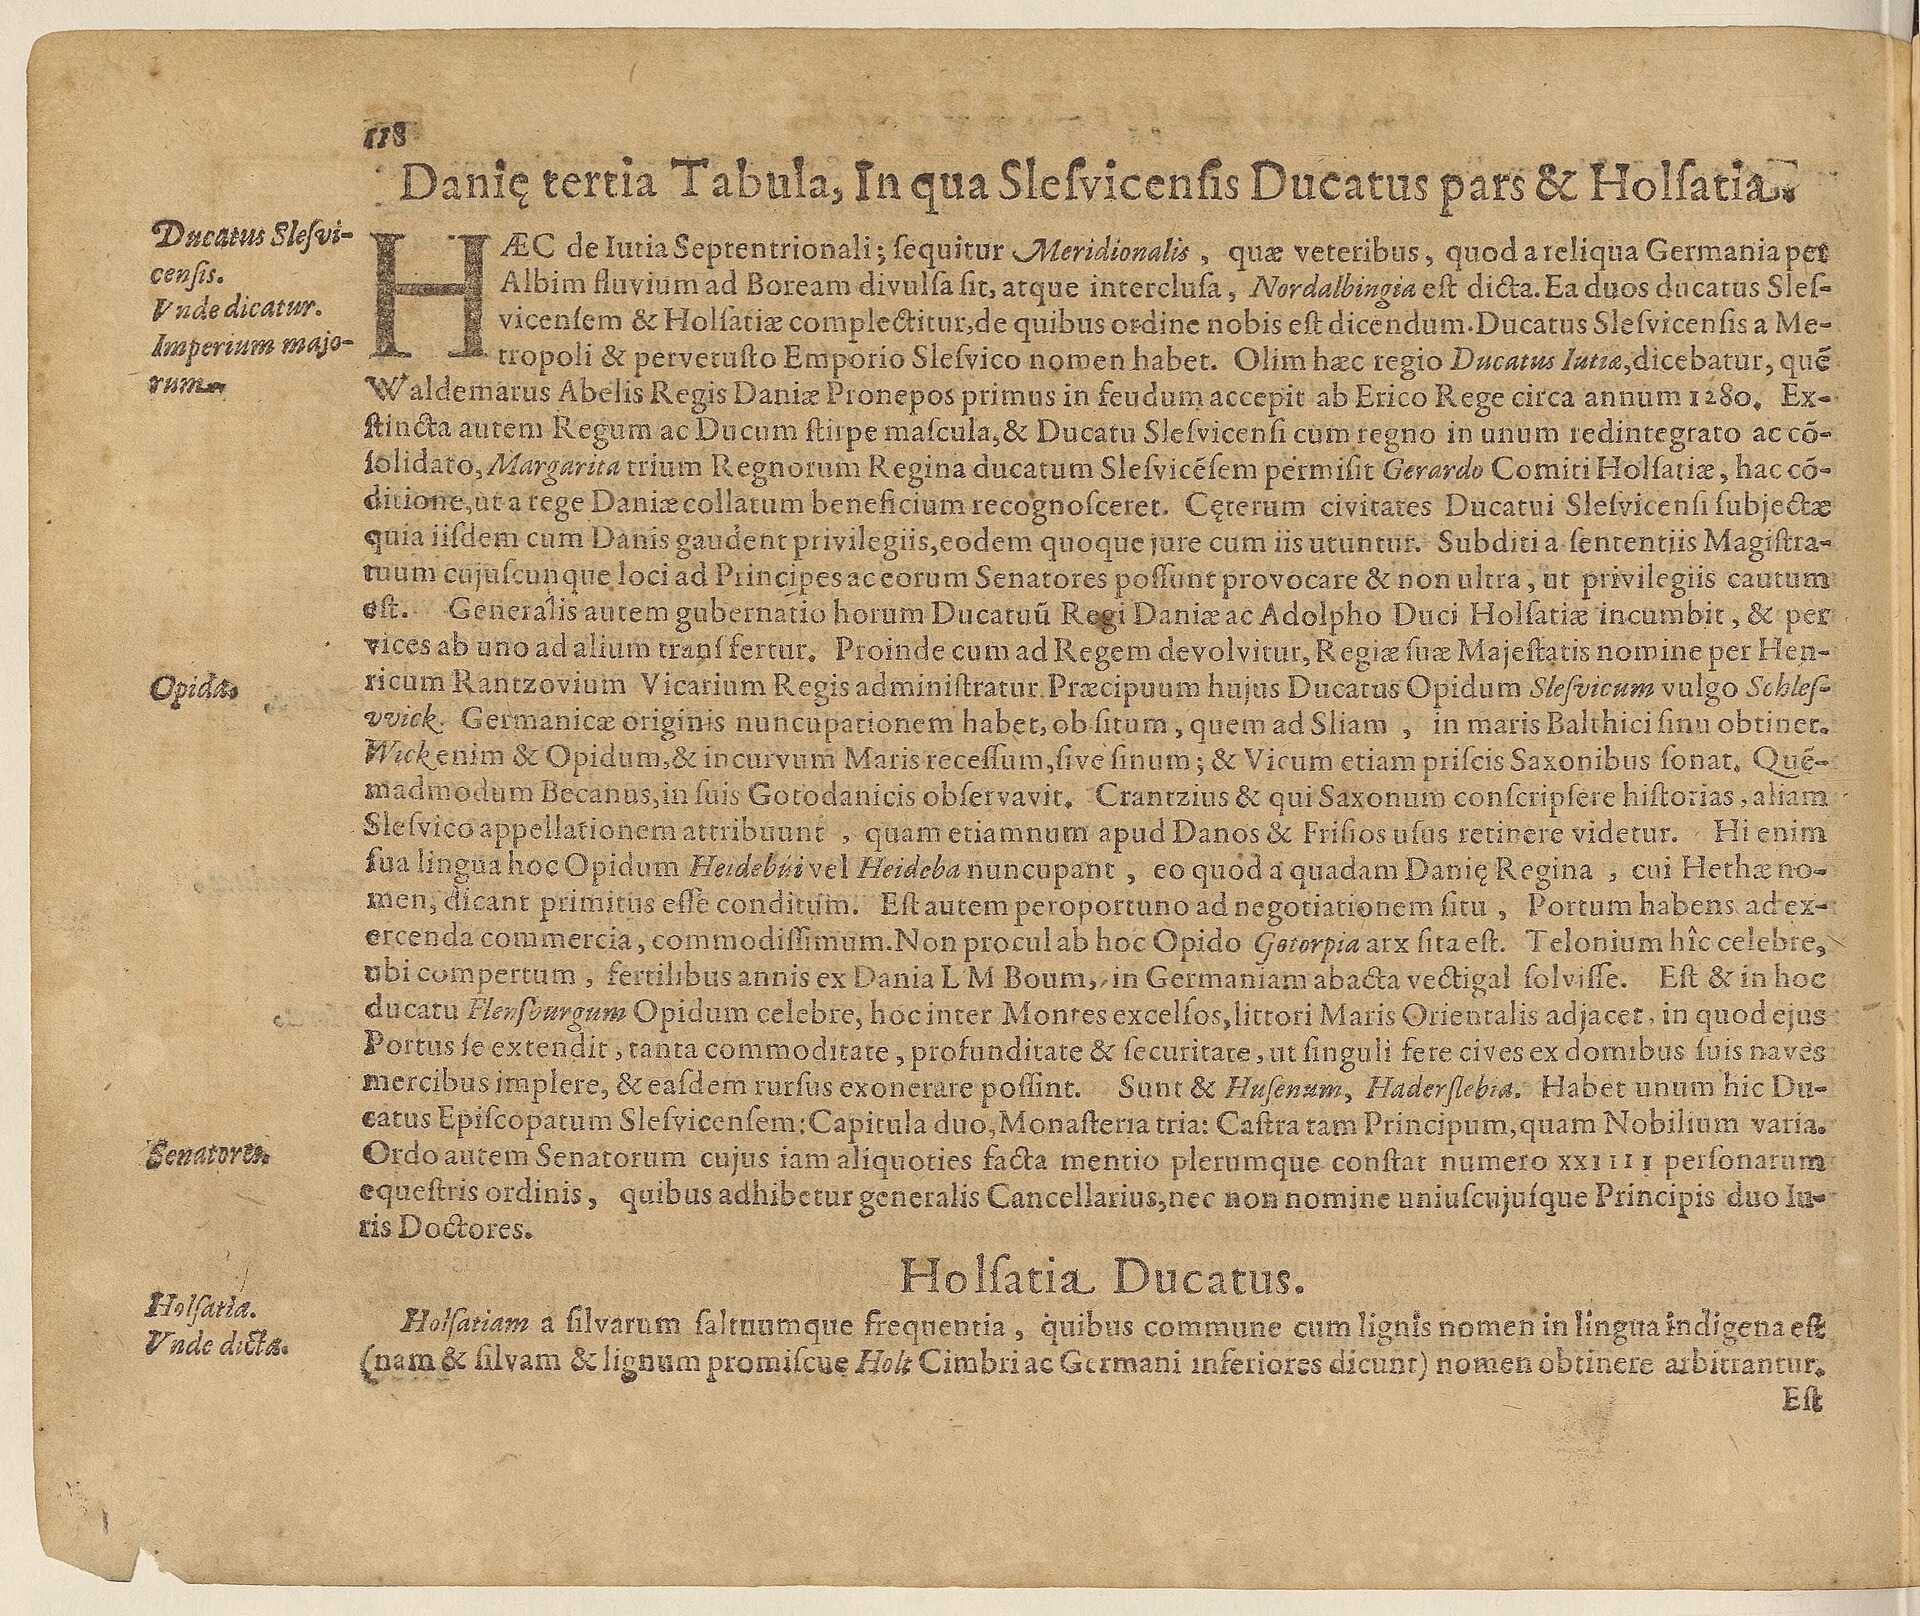 118
Danię tertia Tabula, In qua Sleſvicenſis Ducatus pars & Holſatia.
Ducatus Sleſvi-
cenſis.
Vnde dicatur.
Imperium majo-
rum.
HÆC de Iutia Septentrionali; ſequitur Meridionalis, quæ veteribus, quod a reliqua Germania per
Albim fluvium ad Boream divulſa ſit, atque intercluſa, Nordalbingia eſt dicta. Ea duos ducatus Sleſ-
vicenſem & Holſatiæ complectitur, de quibus ordine nobis eſt dicendum. Ducatus Sleſvicenſis a Me-
tropoli & pervetuſto Emporio Sleſvico nomen habet. Olim hæc regio Ducatus Iutiæ, dicebatur, quẽ
Waldemarus Abelis Regis Daniæ Pronepos primus in feudum accepit ab Erico Rege circa annum 1280. Ex-
ſtincta autem Regum ac Ducum ſtirpe maſcula, & Ducatu Sleſvicenſi cum regno in unum redintegrato ac cõ-
ſolidato, Margarita trium Regnorum Regina ducatum Sleſvicẽſem permiſit Gerardo Comiti Holſatiæ, hac cõ-
ditione, ut a rege Daniæ collatum beneficium recognoſceret. Cęterum civitates Ducatui Sleſvicenſi ſubjectæ
quia iiſdem cum Danis gaudent privilegiis, eodem quoque jure cum iis utuntur. Subditi a ſententiis Magiſtra-
tuum cujuſcunque loci ad Principes ac eorum Senatores poſſunt provocare & non ultra, ut privilegiis cautum
eſt. Generalis autem gubernatio horum Ducatuũ Regi Daniæ ac Adolpho Duci Holſatiæ incumbit, & per
vices ab uno ad alium tranſfertur. Proinde cum ad Regem devolvitur, Regiæ ſuæ Majeſtatis nomine per Hen-
ricum Rantzovium Vicarium Regis adminiſtratur. Præcipuum hujus Ducatus Opidum Sleſvicum vulgo Schleſ-
Opida.
vvick. Germanicæ originis nuncupationem habet, ob ſitum, quem ad Sliam, in maris Balthici ſinu obtinet.
Wick enim & Opidum, & incurvum Maris receſſum, ſive ſinum; & Vicum etiam priſcis Saxonibus ſonat. Quẽ-
madmodum Becanus, in ſuis Gotodanicis obſervavit. Crantzius & qui Saxonum conſcripſere hiſtorias, aliam
Sleſvico appellationem attribuunt, quam etiamnum apud Danos & Friſios uſus retinere videtur. Hi enim
ſua lingua hoc Opidum Heidebúi vel Heideba nuncupant, eo quod a quadam Danię Regina, cui Hethæ no-
men, dicant primitus eſſe conditum. Eſt autem peroportuno ad negotiationem ſitu, Portum habens ad ex-
ercenda commercia, commodiſſimum. Non procul ab hoc Opido Gotorpia arx ſita eſt. Telonium hîc celebre,
ubi compertum, fertilibus annis ex Dania L M Boum, in Germaniam abacta vectigal ſolviſſe. Eſt & in hoc
ducatu Flenſburgum Opidum celebre, hoc inter Montes excelſos, littori Maris Orientalis adjacet, in quod ejus
Portus ſe extendit, tanta commoditate, profunditate & ſecuritate, ut ſinguli fere cives ex domibus ſuis naves
mercibus implere, & eaſdem rurſus exonerare poſſint. Sunt & Huſenum, Haderſlebia. Habet unum hic Du-
catus Epiſcopatum Sleſvicenſem: Capitula duo, Monaſteria tria: Caſtra tam Principum, quam Nobilium varia.
Senatores.
Ordo autem Senatorum cujus iam aliquoties facta mentio plerumque conſtat numero XXIIII perſonarum
equeſtris ordinis, quibus adhibetur generalis Cancellarius, nec non nomine uniuſcujuſque Principis duo Iu-
ris Doctores.
Holſatia Ducatus.
Holſatia.
Vnde dicta.
Holſatiam a ſilvarum ſaltuumque frequentia, quibus commune cum lignis nomen in lingua indigena eſt
(nam & ſilvam & lignum promiſcue Holt Cimbri ac Germani inferiores dicunt) nomen obtinere arbitrantur.
Eſt